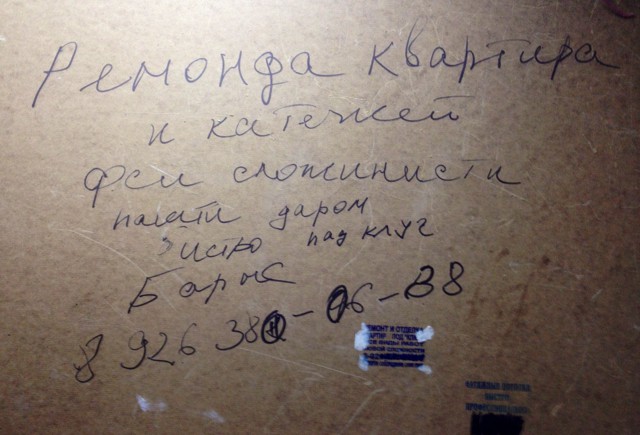 Ремонда квартира
и катечей
фси сложинисти
палати даром
Чистю пад клуч
Барис
8 926 380-06-38
РЕМОНТ И ОТДЕЛКА
КВАРТИР ПОД КЛЮЧ